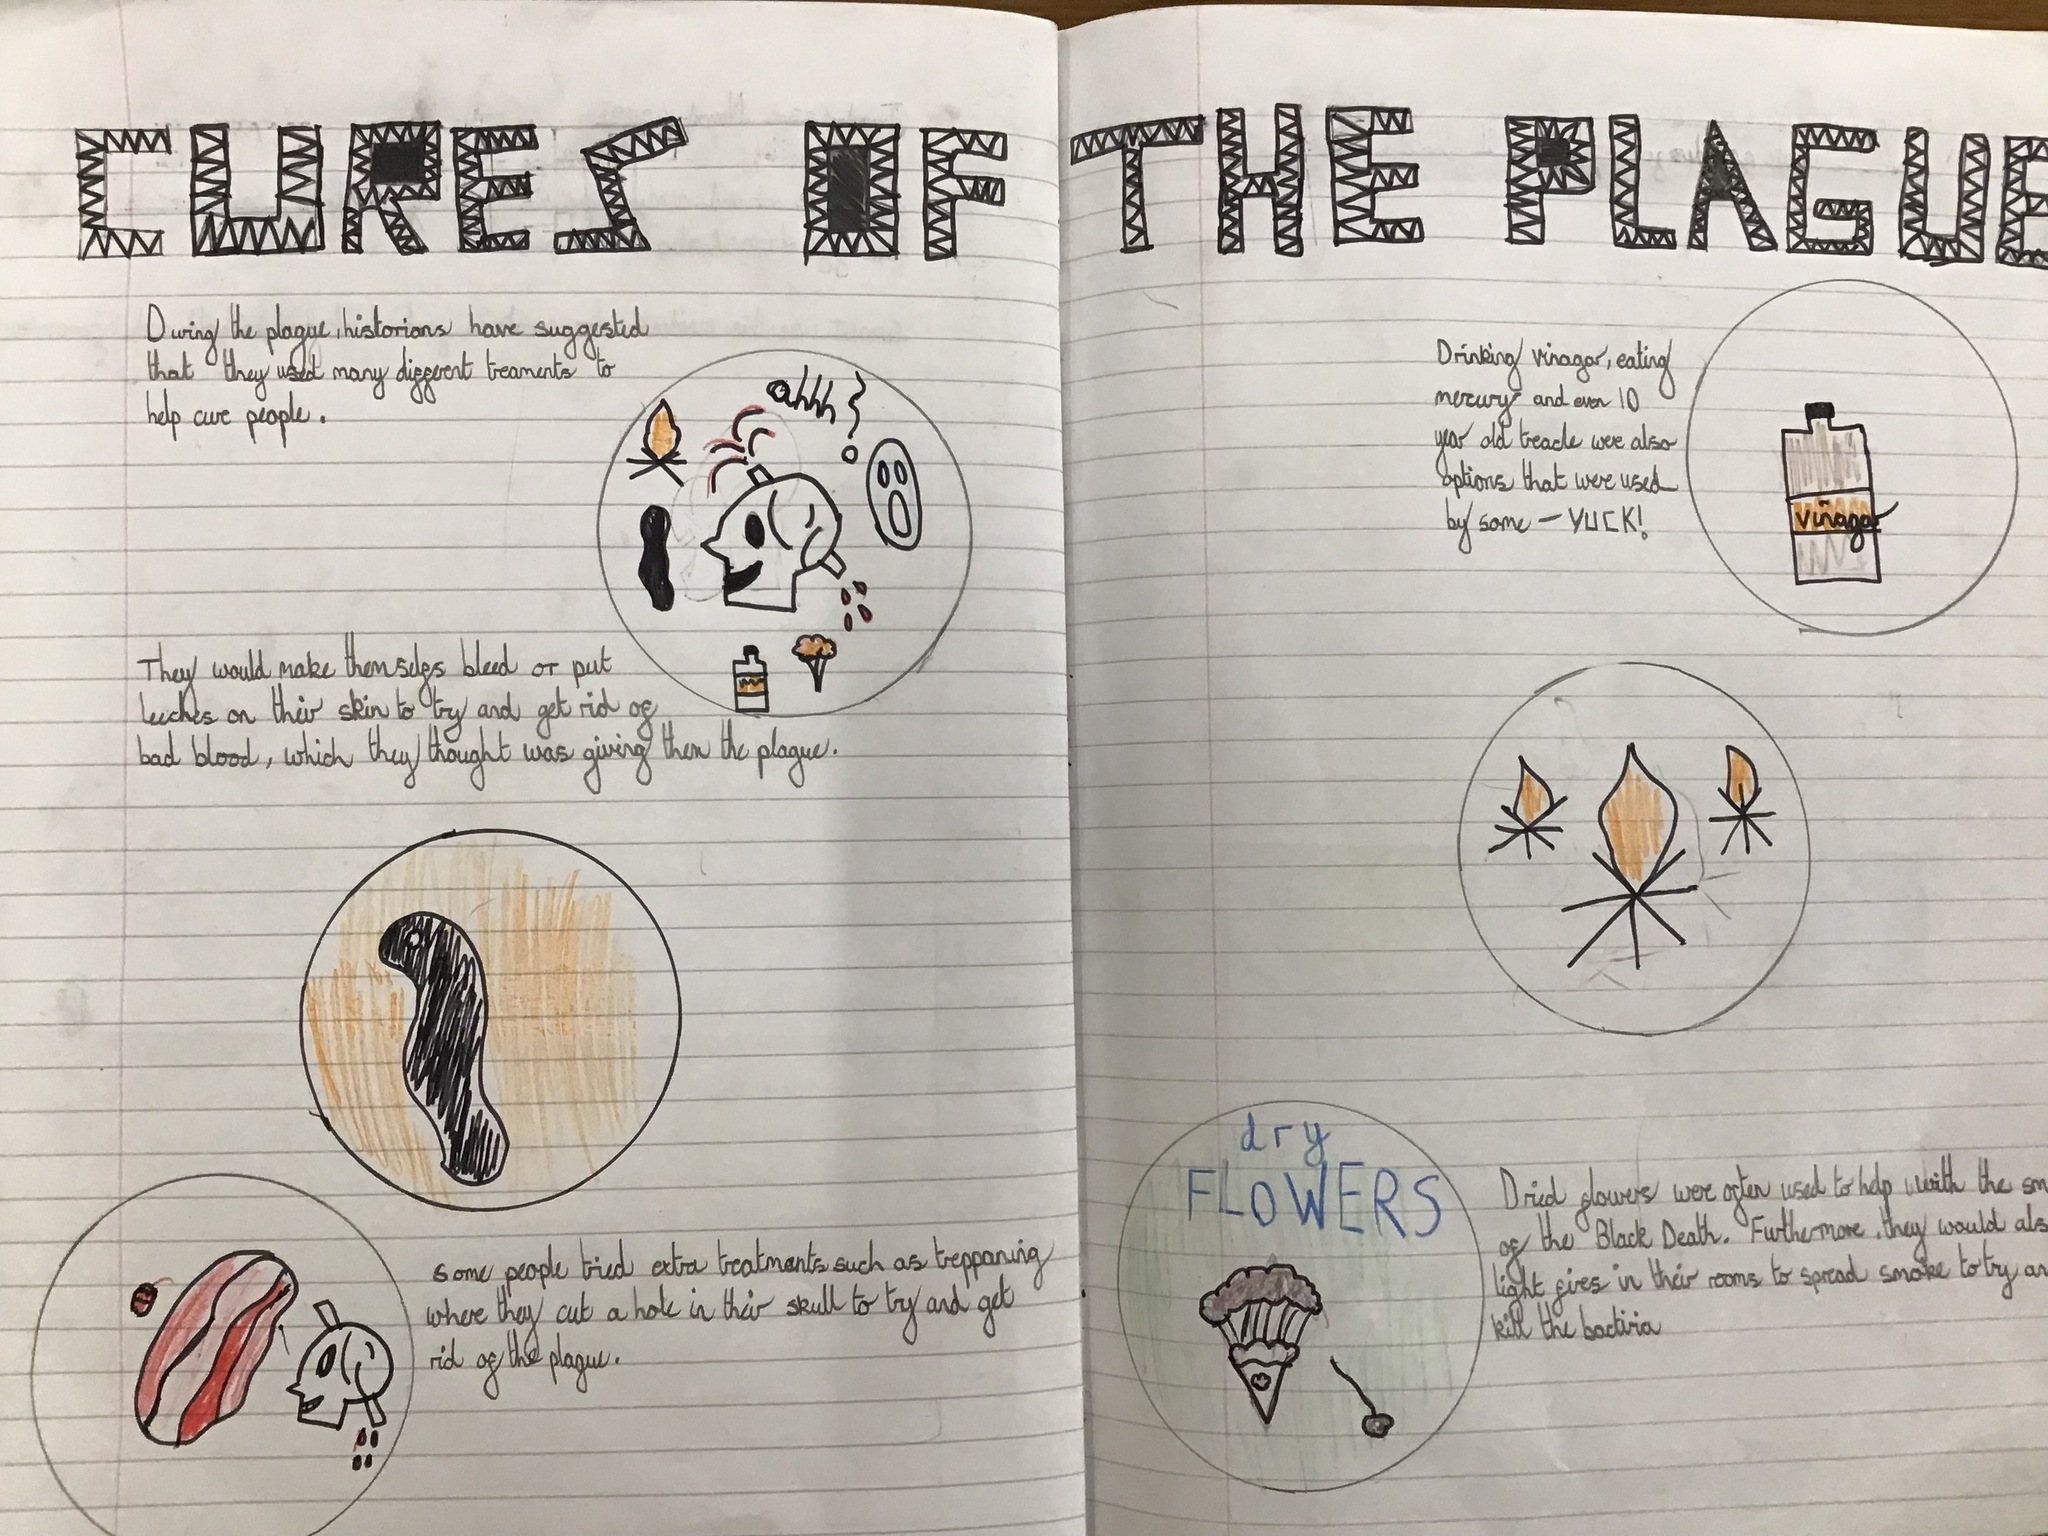 CURES OF THE PLAGUE
During the plague, historians have suggested
that they used many different treaments to
help cure people.
ahhh
They would make themselges bleed or put
leeches on their skin to try and get rid of
bad blood, which they thought was giving them the plague.
some people tried extra treatments such as treppaning
where they cut a hole in their skull to try and get
rid of the plague.
Drinking vinagar, eating
mercury and even 10
year old treacle were also
options that were used
by some - YUCK!
vinagar
dry
FLOWERS
Dried flowers were often used to help with the sm
of the Black Death. Furthermore, they would als
light fires in their rooms to spread smoke to try an
kill the bactiria